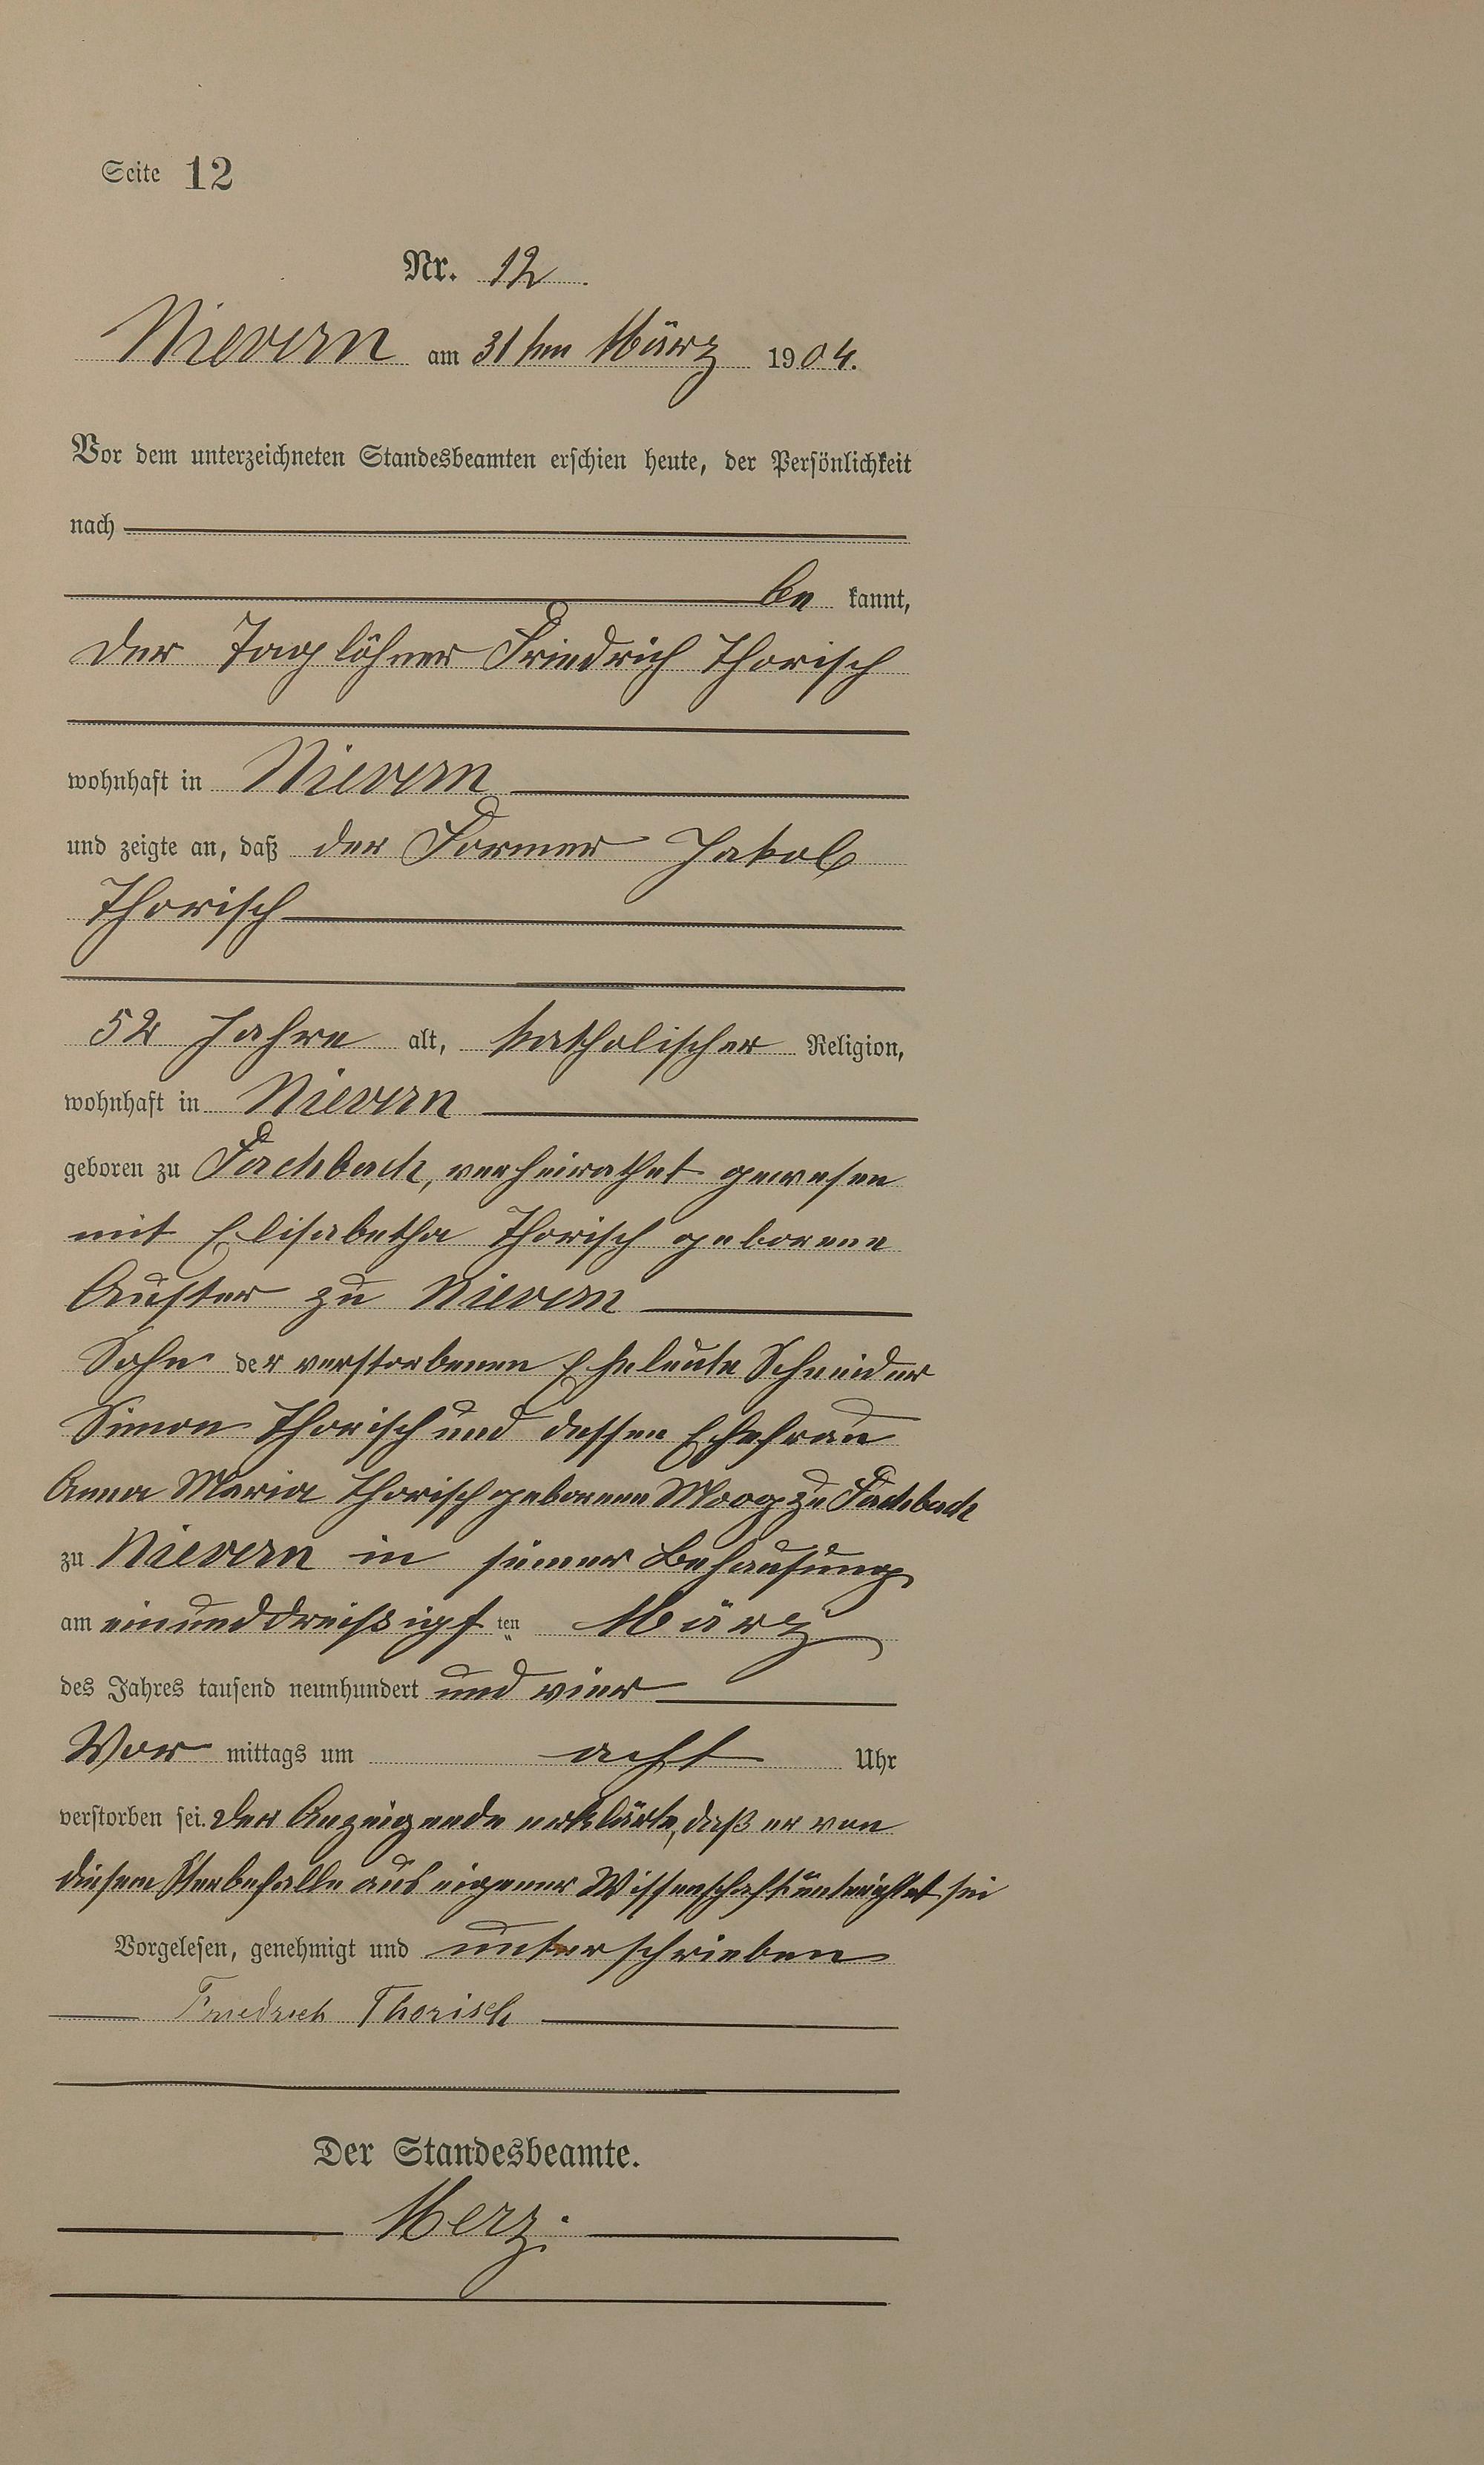 Seite 12
Nr. 12
Nievern am 31ten März 1904.
Vor dem unterzeichneten Standesbeamten erschien heute, der Persönlichkeit
nach
be kannt,
der Taglöhner Friedrich Thorisch
wohnhaft in Nievern
und zeigte an, daß der Former Jakob
Thorisch
52 Jahre alt, katholischer Religion,
wohnhaft in Nievern
geboren zu Fachbach, verheirathet gewesen
mit Elisabetha Thorisch geborene
zu Nievern
Sohn der verstorbenen Eheleute Schneider
Simon Thorisch und dessen Ehefrau
Anna Maria Thorisch geborene Moog zu Fachbach
zu Nievern in seiner Behausung
am einunddreißigsten März
des Jahres tausend neunhundert und vier
Vor mittags um acht Uhr
verstorben sei. Der Anzeigende erklärte, daß er von
diesem Sterbefalle aus eigener Wissenschaft unterrichtet sei
Vorgelesen, genehmigt und unterschrieben
Friedrich Thorisch
Der Standesbeamte.
Merz.